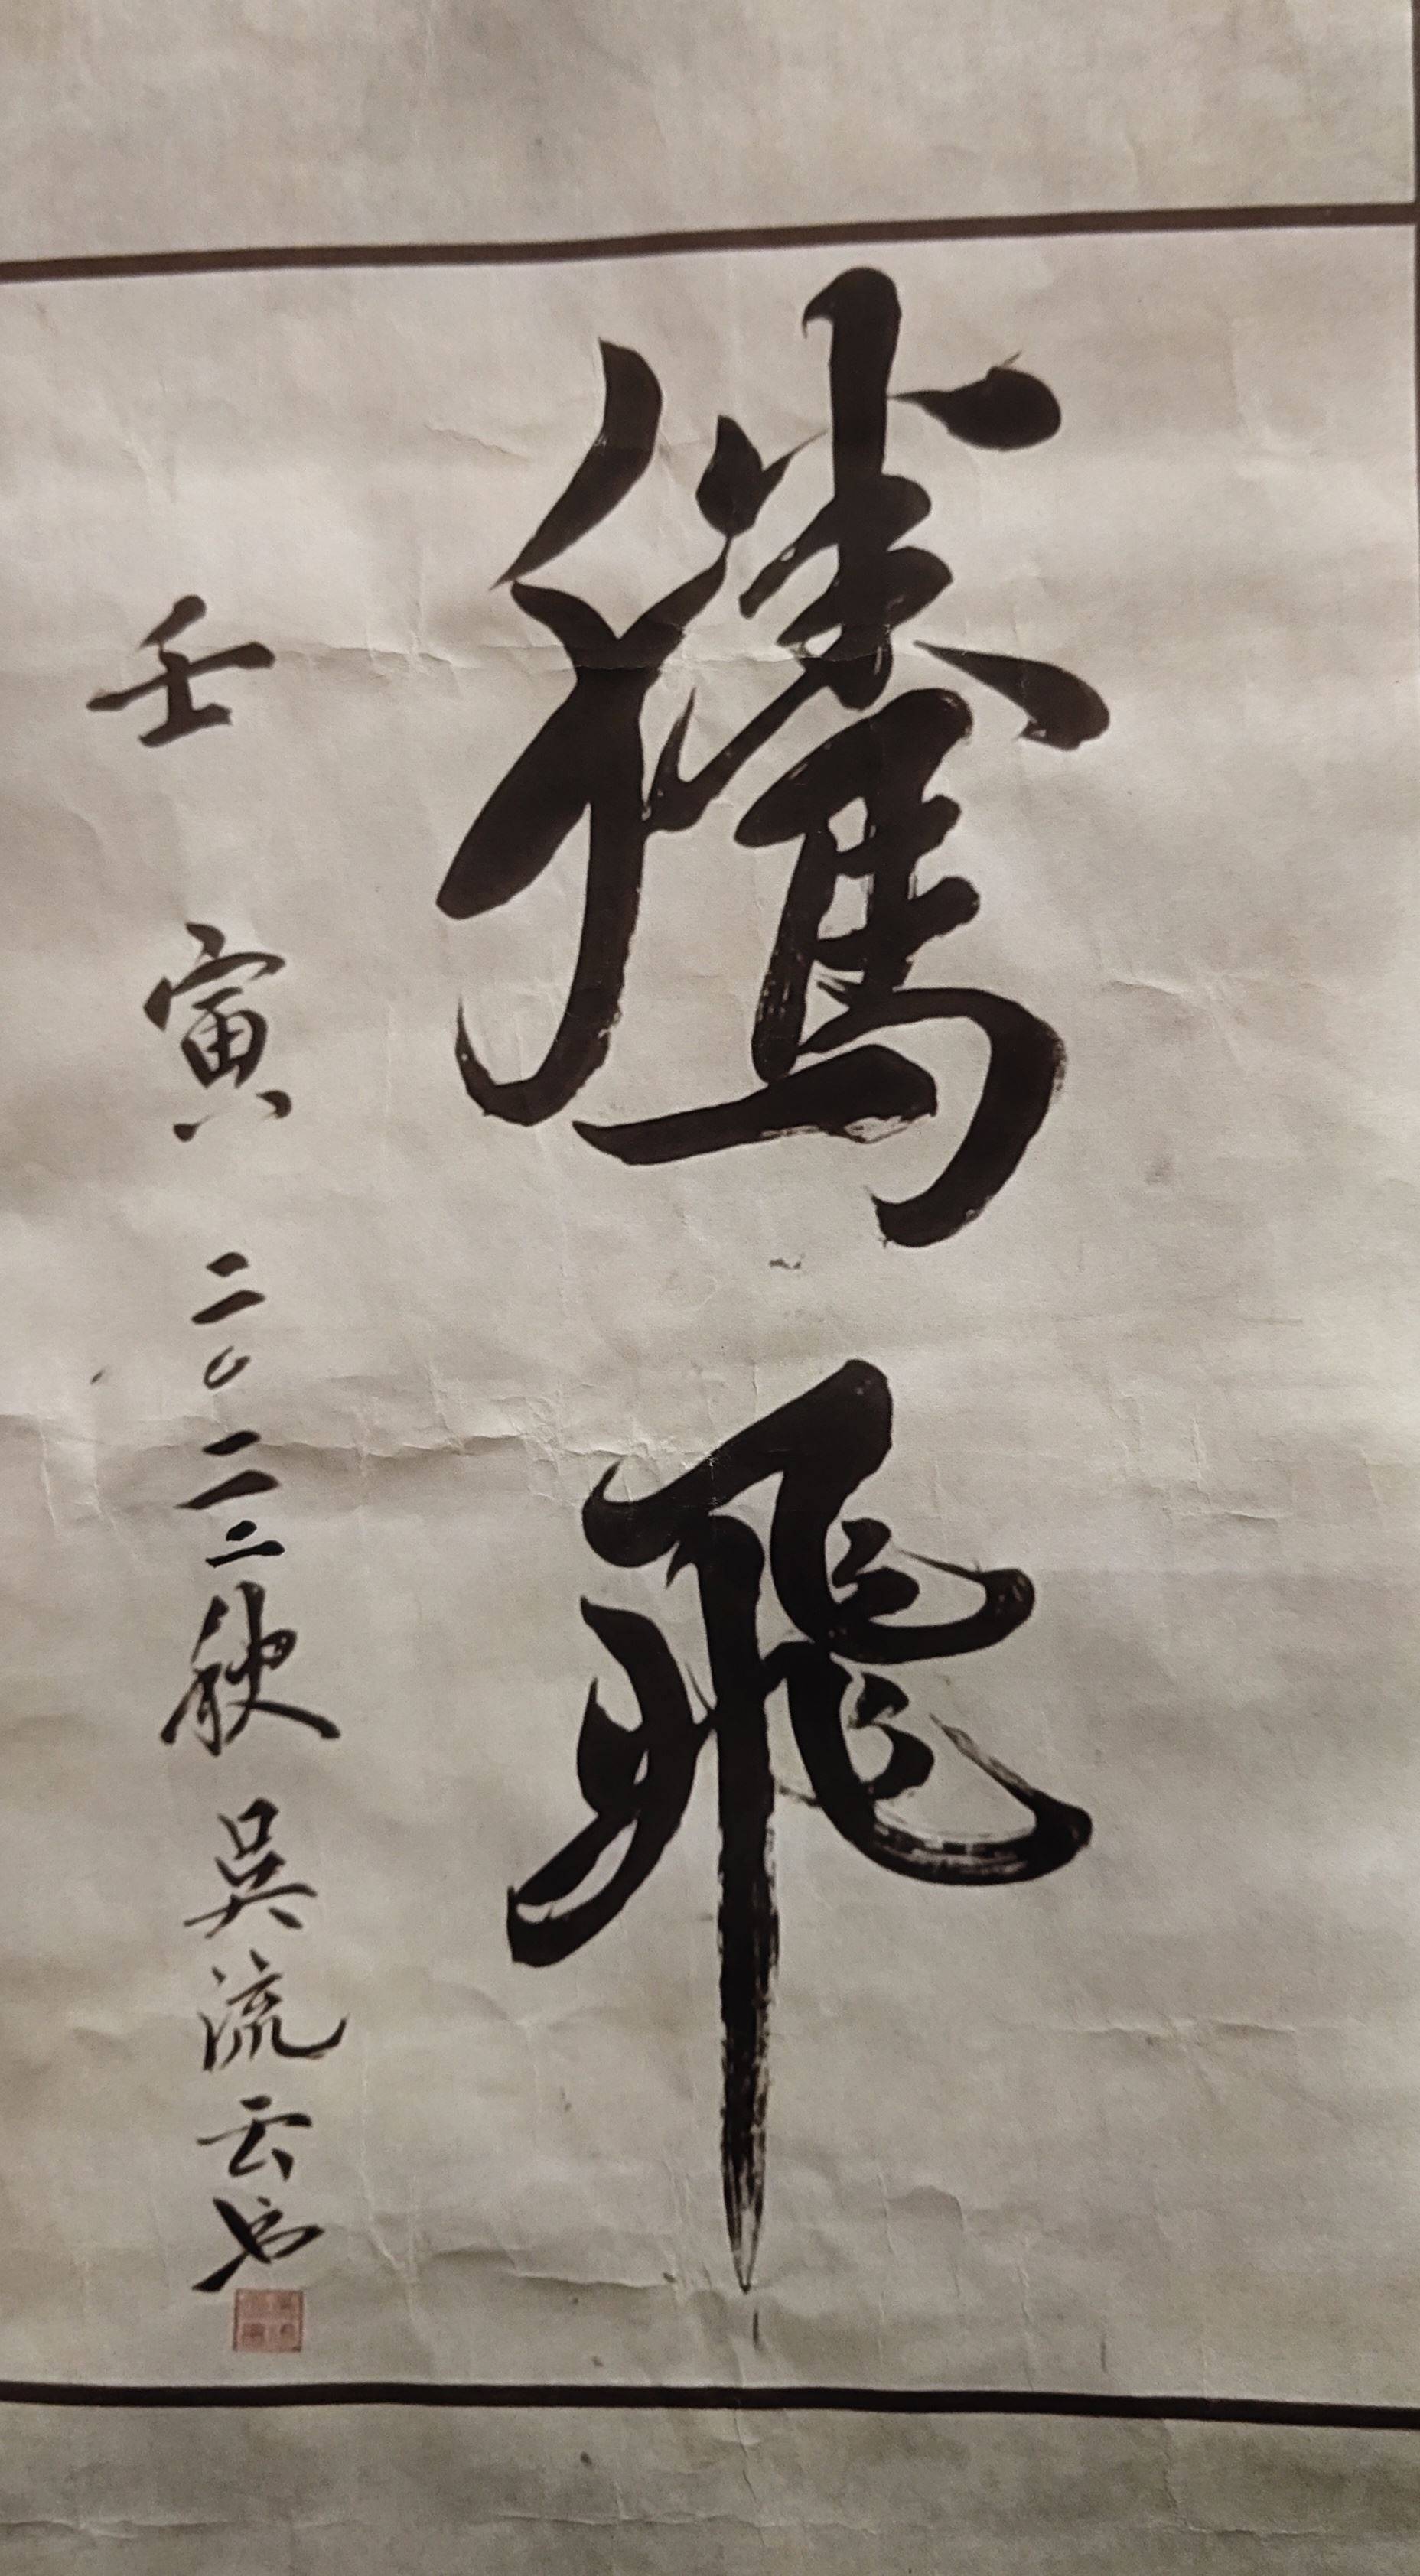 騰飛
壬寅二〇二二秋吳流云书